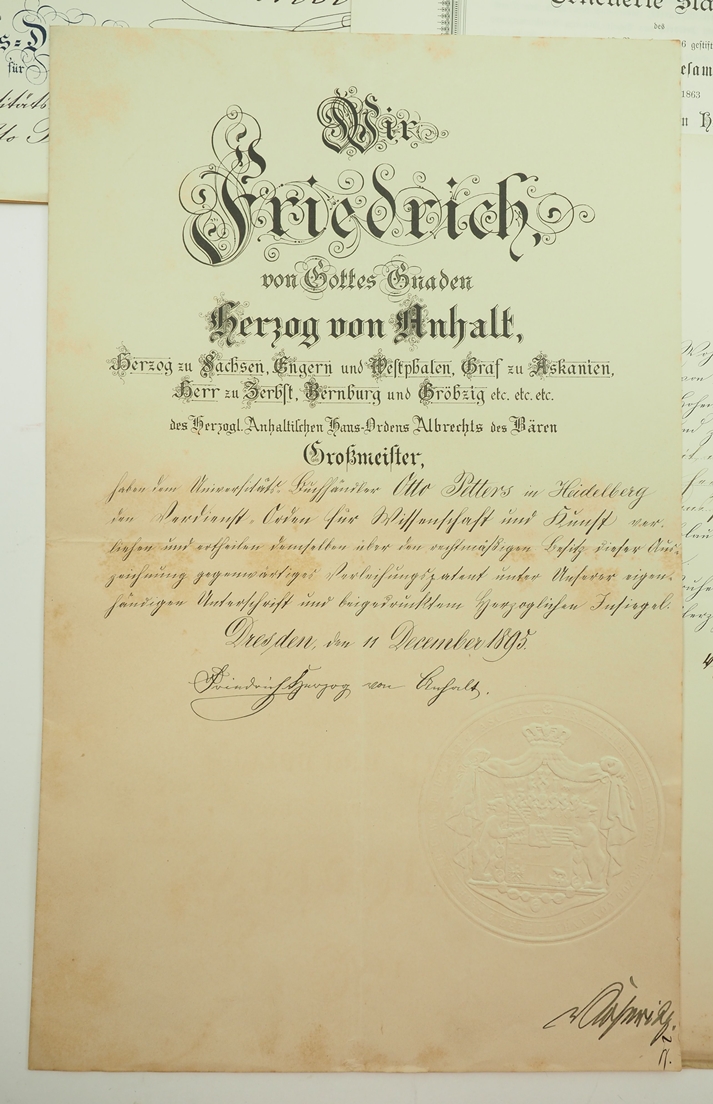 s-D
für
itäts
Erneuerte Sta
des
6 gestift
esam
1863
n H
Wir
Friedrich,
von Gottes Gnaden
Herzog von Anhalt,
Herzog zu Sachsen, Engern und Westphalen, Graf zu Askanien,
Herr zu Zerbst, Bernburg und Gröbzig etc. etc. etc.
des Herzogl. Anhaltischen Haus-Ordens Albrechts des Bären
Großmeister,
haben dem Universitäts-Buchhändler Otto Petters in Heidelberg
den Verdienst-Orden für Wissenschaft und Kunst ver-
liehen und ertheilen demselben über den rechtmäßigen Besitz dieser Aus-
zeichnung gegenwärtiges Verleihungspatent unter Unserer eigen-
händigen Unterschrift und beigedrucktem Herzoglichen Insiegel.
Dresden, den 11 December 1895.
Friedrich Herzog von Anhalt.